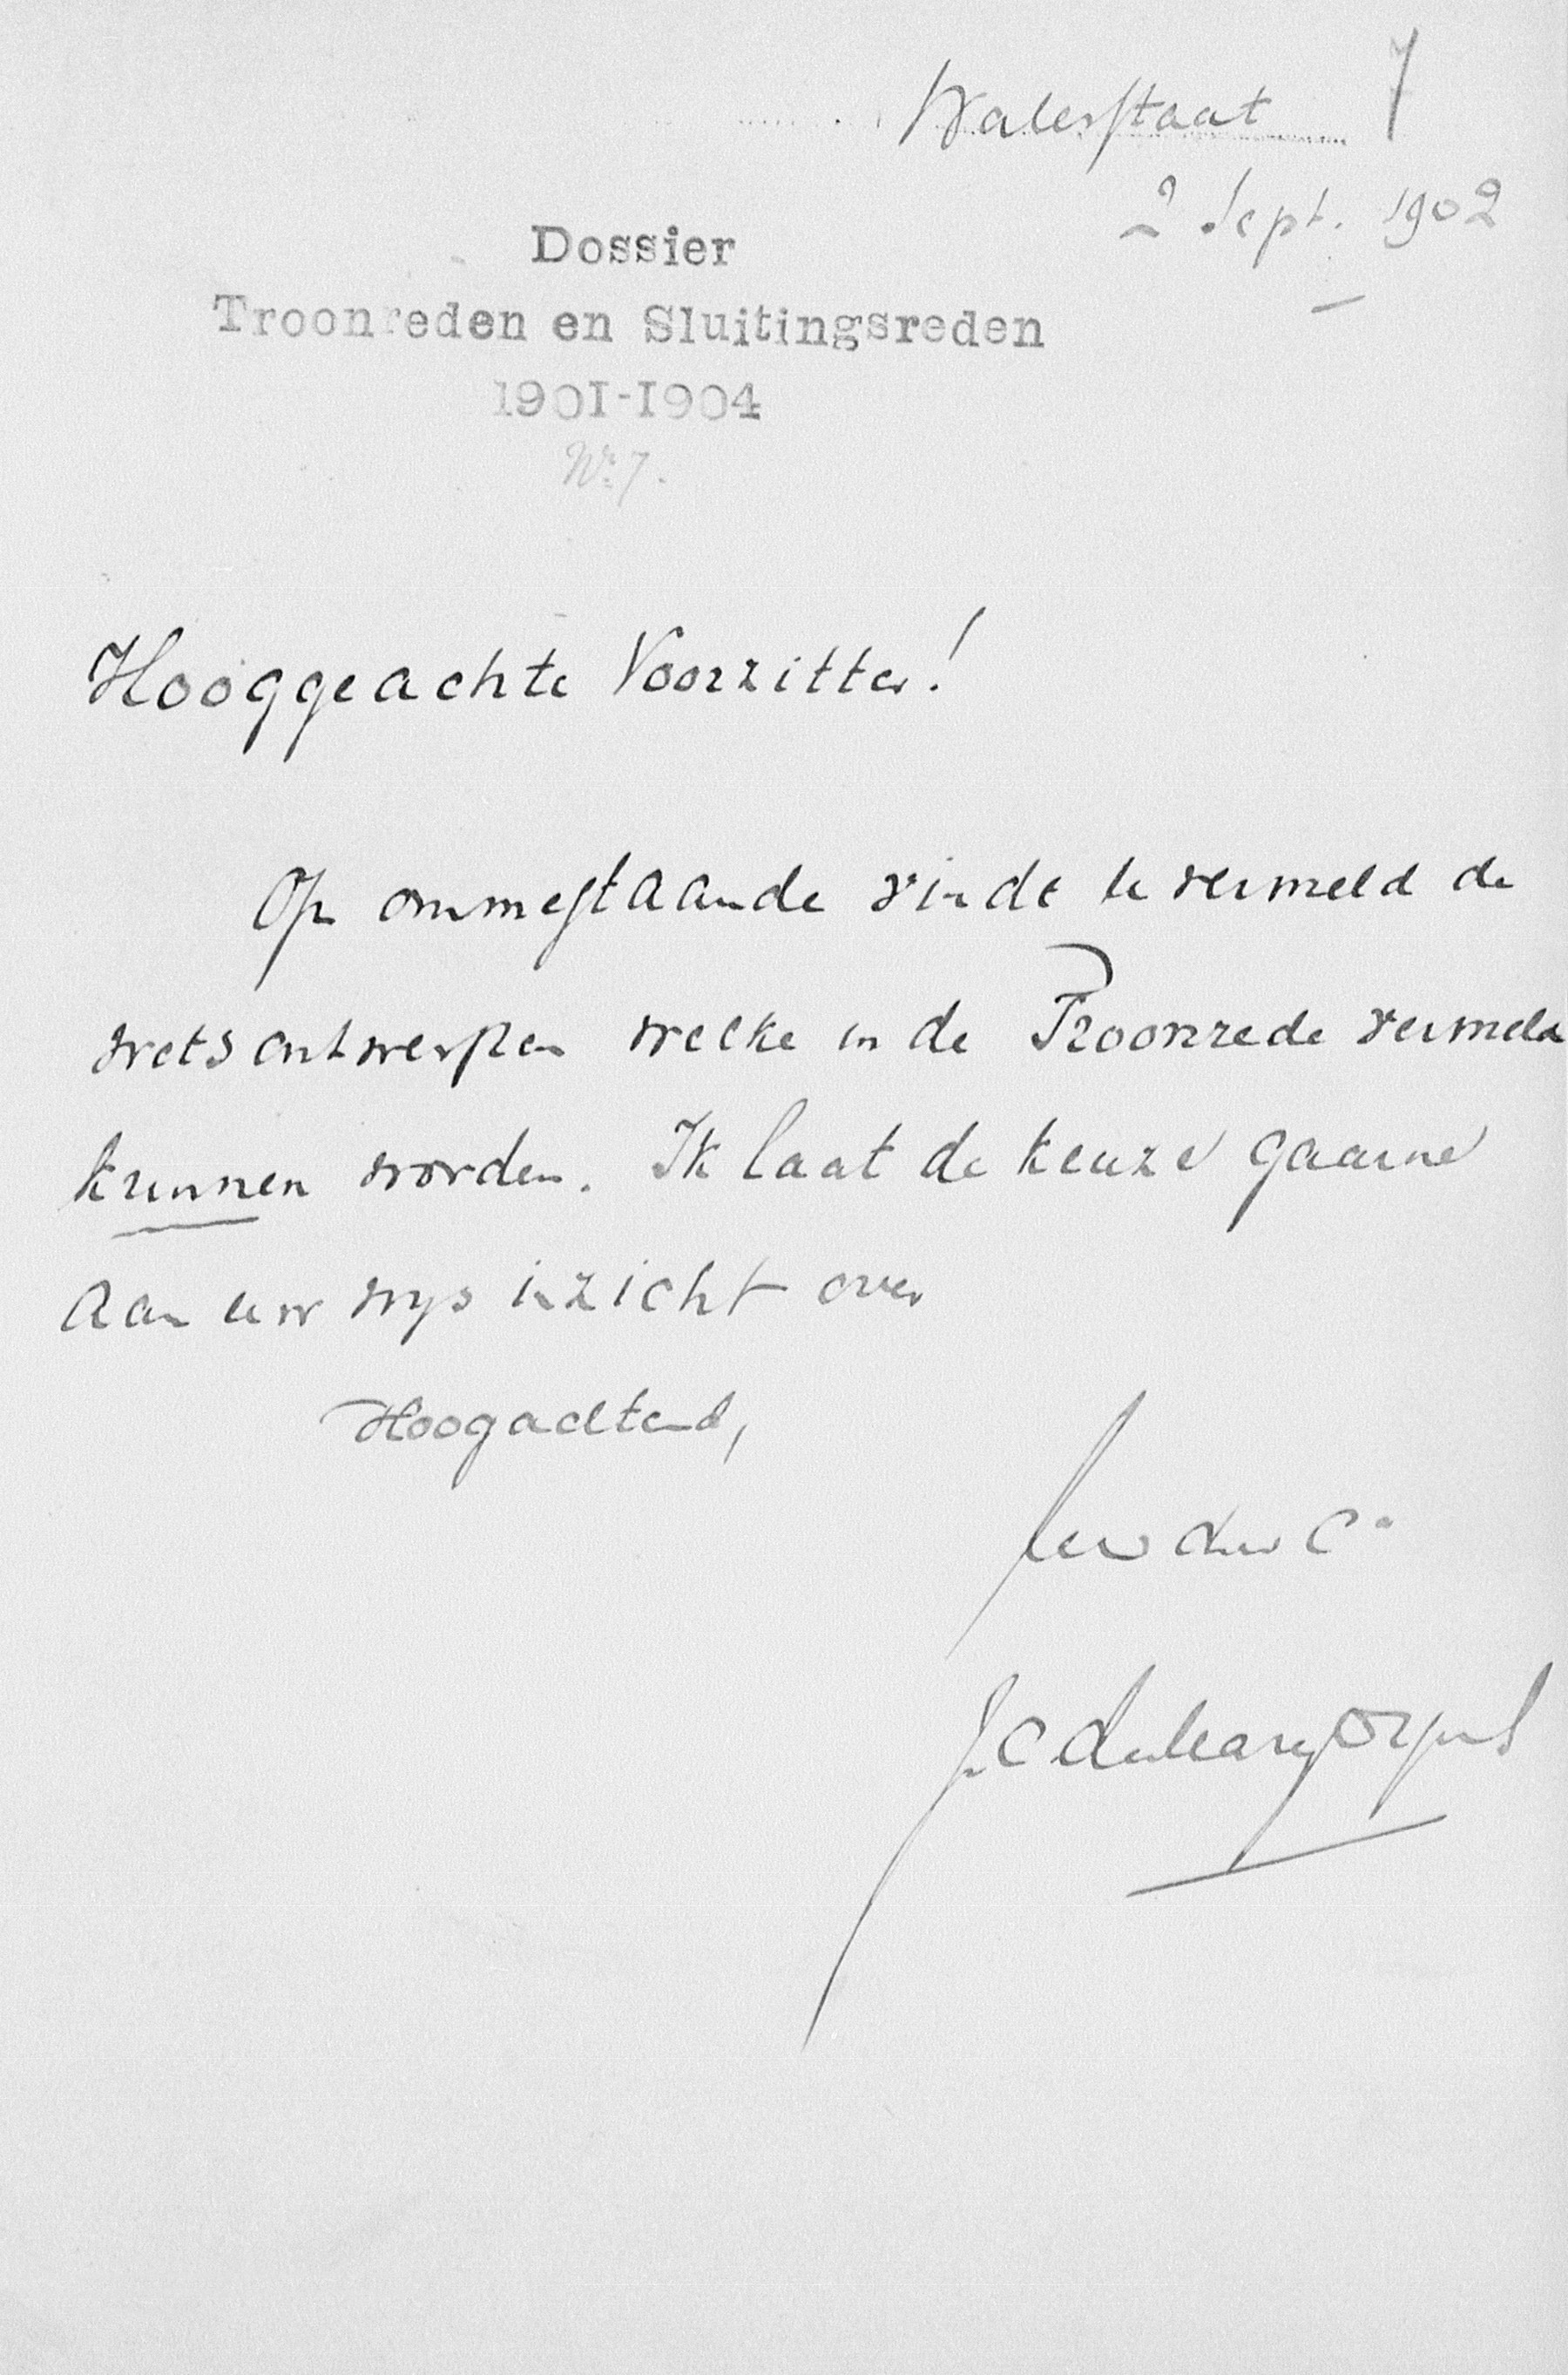 Waterstaat 7
2 Sept. 1902
Dossier
Troonreden en Sluitingsreden
1901-1904
No. 7.
Hooggeachte Voorzitter!
Op ommestaande vindt U vermeld de
wetsontwerpen welke in de Troonrede vermeld
kunnen worden. Ik laat de keuze gaarne
aan uw wijs inzicht over
Hoogachtend,
J.C. de Marez Oyens